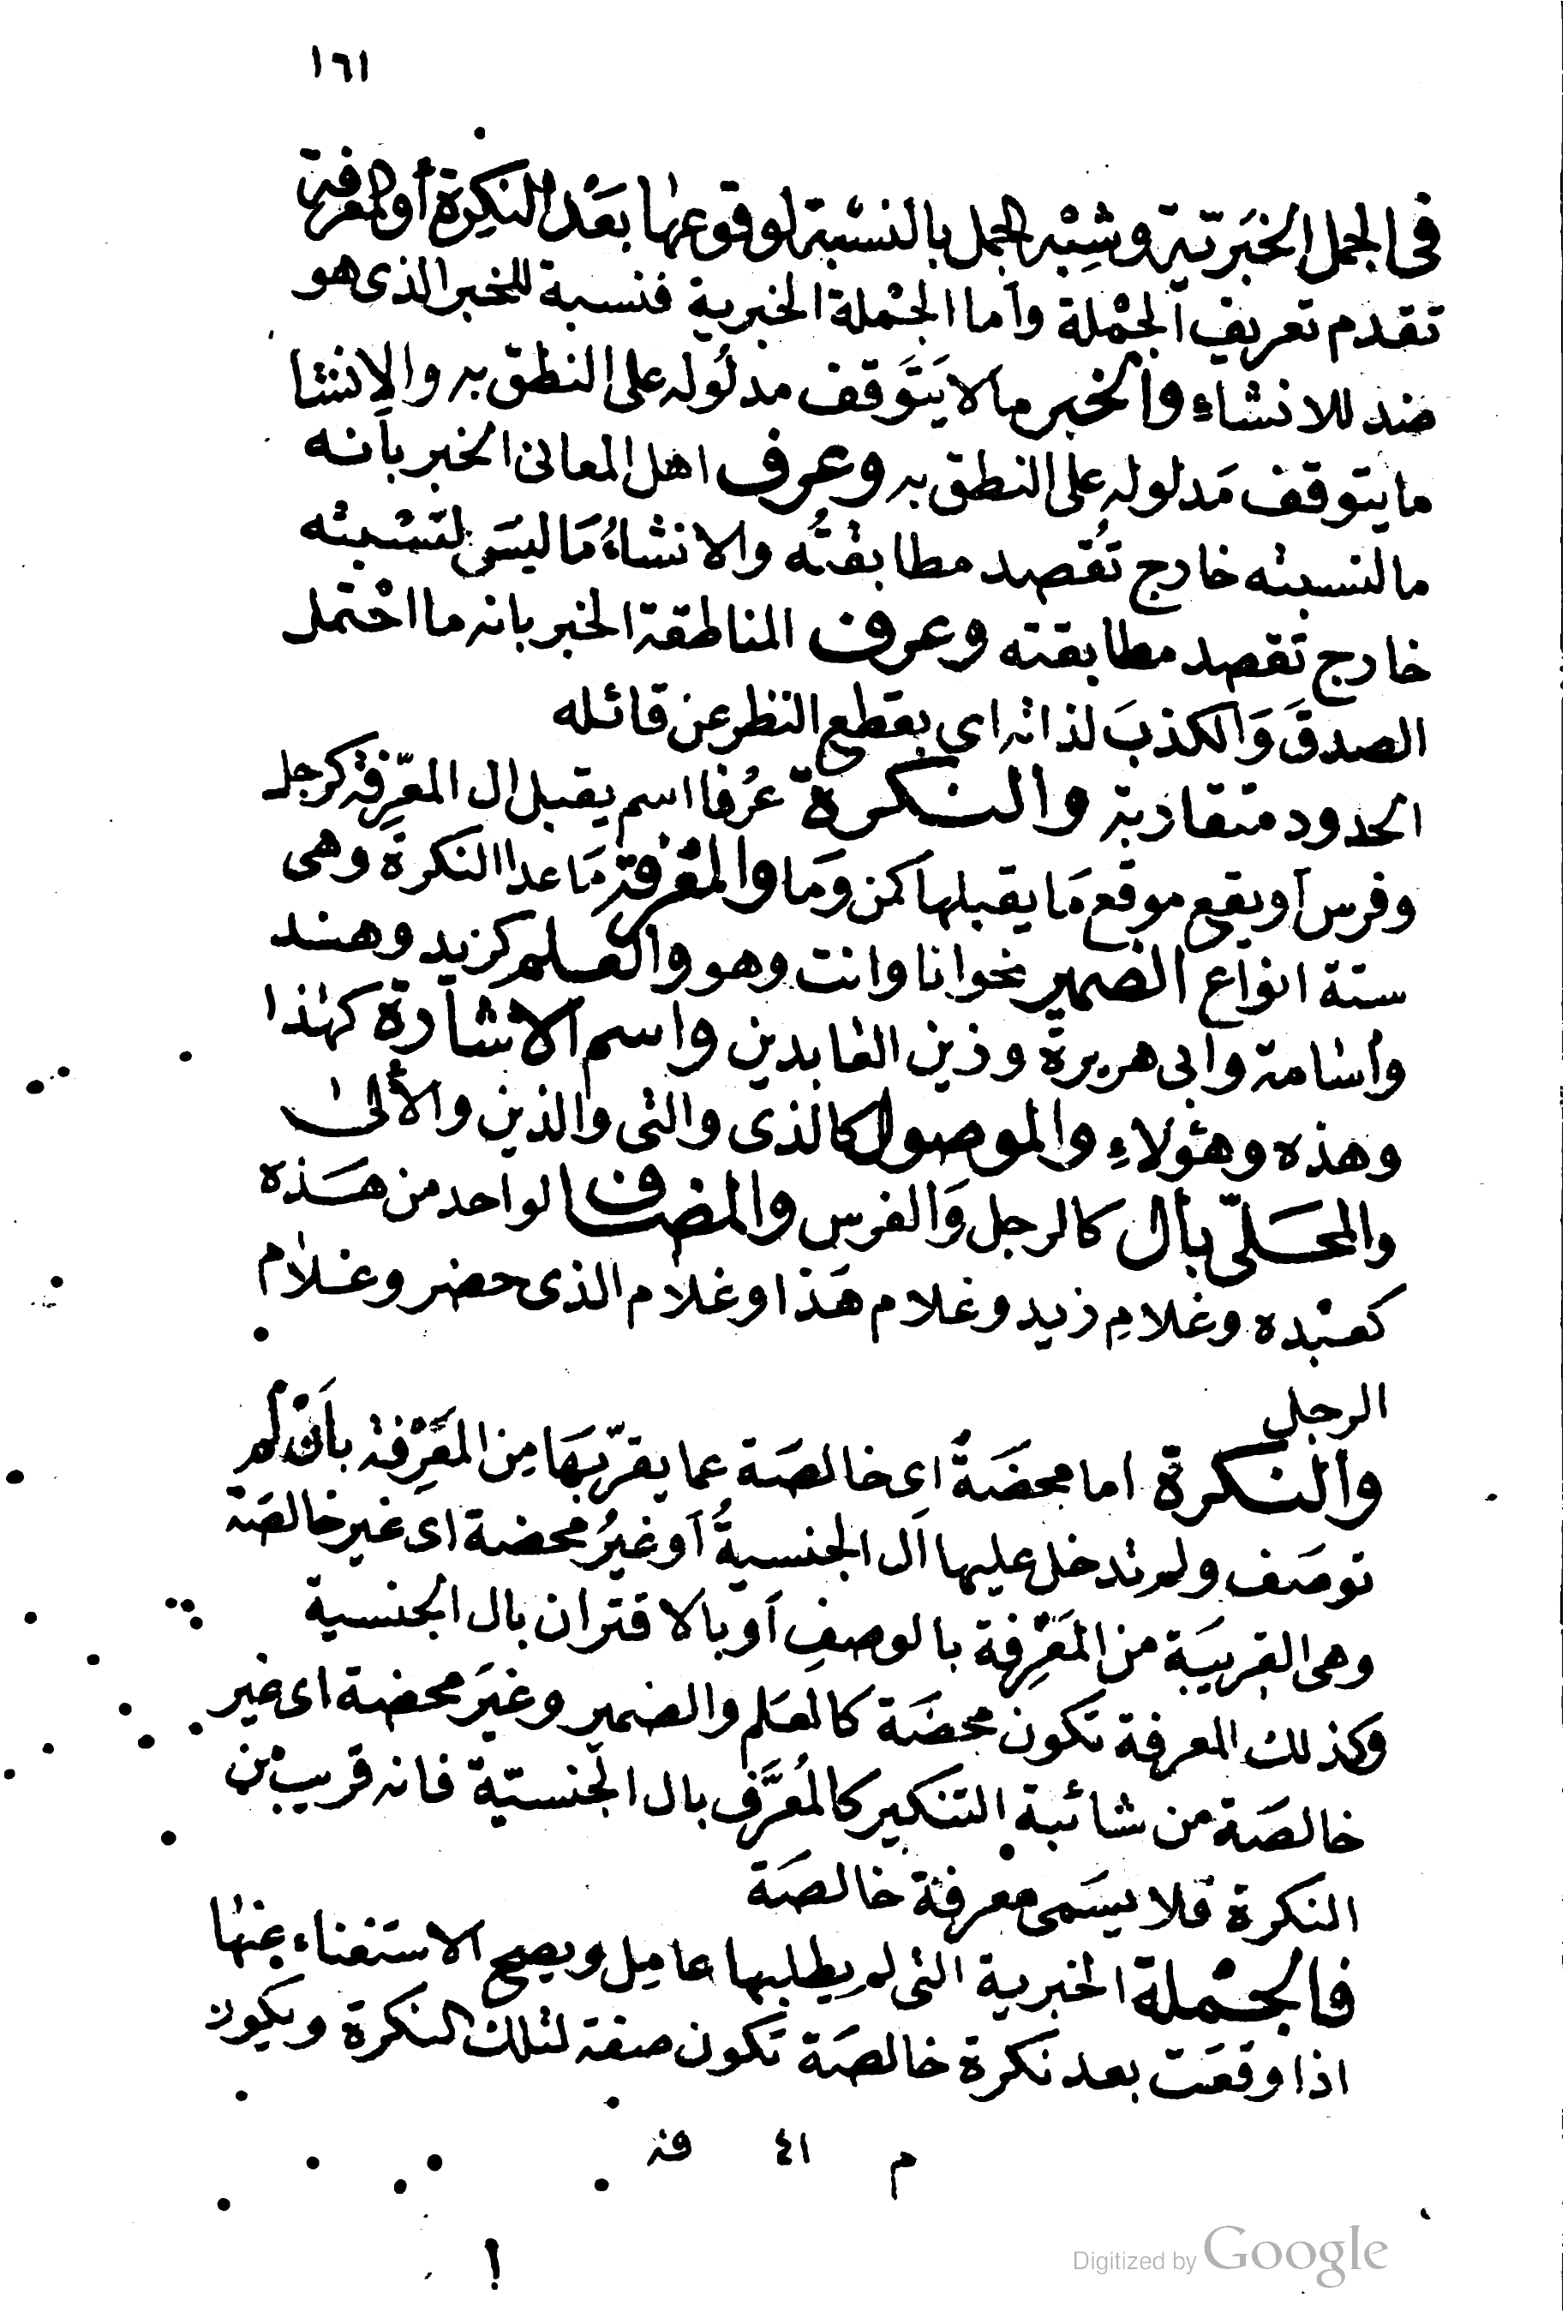 ١٦١
فى الجمل الخَبَريّة وشِبْه الجمل بالنسْبة لوقوعها بَعْد النكِرة أو المعرفة
تقدم تعريف الجْملة وأما الجْملة الخبرية فنسبة للخبر الذى هو
ضد للانشاءِ والخبر ما لا يَتَوقف مدلُوله على النطق به والانشا
ما يتوقف مَدلوله على النطق به وعرف اهل المعانى الخبر بأنه
ما لنسبته خارج تُقصد مطابقتُه والانشاءُ مَا ليسَ لنسْبته
خارج تقصد مطابقته وعرف المناطقة الخبر بانه ما احْتمل
الصدقَ وَالكذبَ لذاته اى بقطع النظر عن قائله
الحدود متقاربة والنكرة عُرفا اسم يقبل ال المعّرِفة كرجل
وفرس أو يقع موقع مَا يقبلها كمن وَما والمعْرفة مَا عدا النكرة وهى
ستة انواع الضمير نحو انا وانت وهو والعلم كزيد وهند
وأسامة وابى هريرة وزين العابدين واسم الاشارة كهٰذا
وهذه وهؤلاءِ والموصول كالذى والتى والذين والألىٰ
والمحَلّى بأل كالرجل وَالفرس والمضاف لواحد من هَذه
كعبْده وغلامِ زيد وغلام هَذا وغلام الذى حضر وغلام
الرجل
والنكرة اما محضَةٌ اى خالصَة عما يقرّبهَا مِن المَعْرِفة بأنْ لم
توصَف ولم تدخل عليها أل الجنسيةُ أو غيرُ محضة اى غير خالصَة
وهى القريبَة من المَعْرِفة بالوصفِ أو بالاقتران بال الجنسية
وكذلك المعرفة تكون محضَة كالعَلم والضمير وغيَر محضة اى غير
خالصَة من شائبة التنكير كالمُعرَّف بال الجنسيّة فانه قريب من
النكرة فلا يسَمى معرفة خالصَة
فالجْملة الخبرية التى لم يطلبها عامِل ويصح الاستغناء عنها
اذا وقعَت بعد نكرة خالصَة تكون صفة لتلك النكرة ويكون
م ٤١ فـ
Digitized by Google